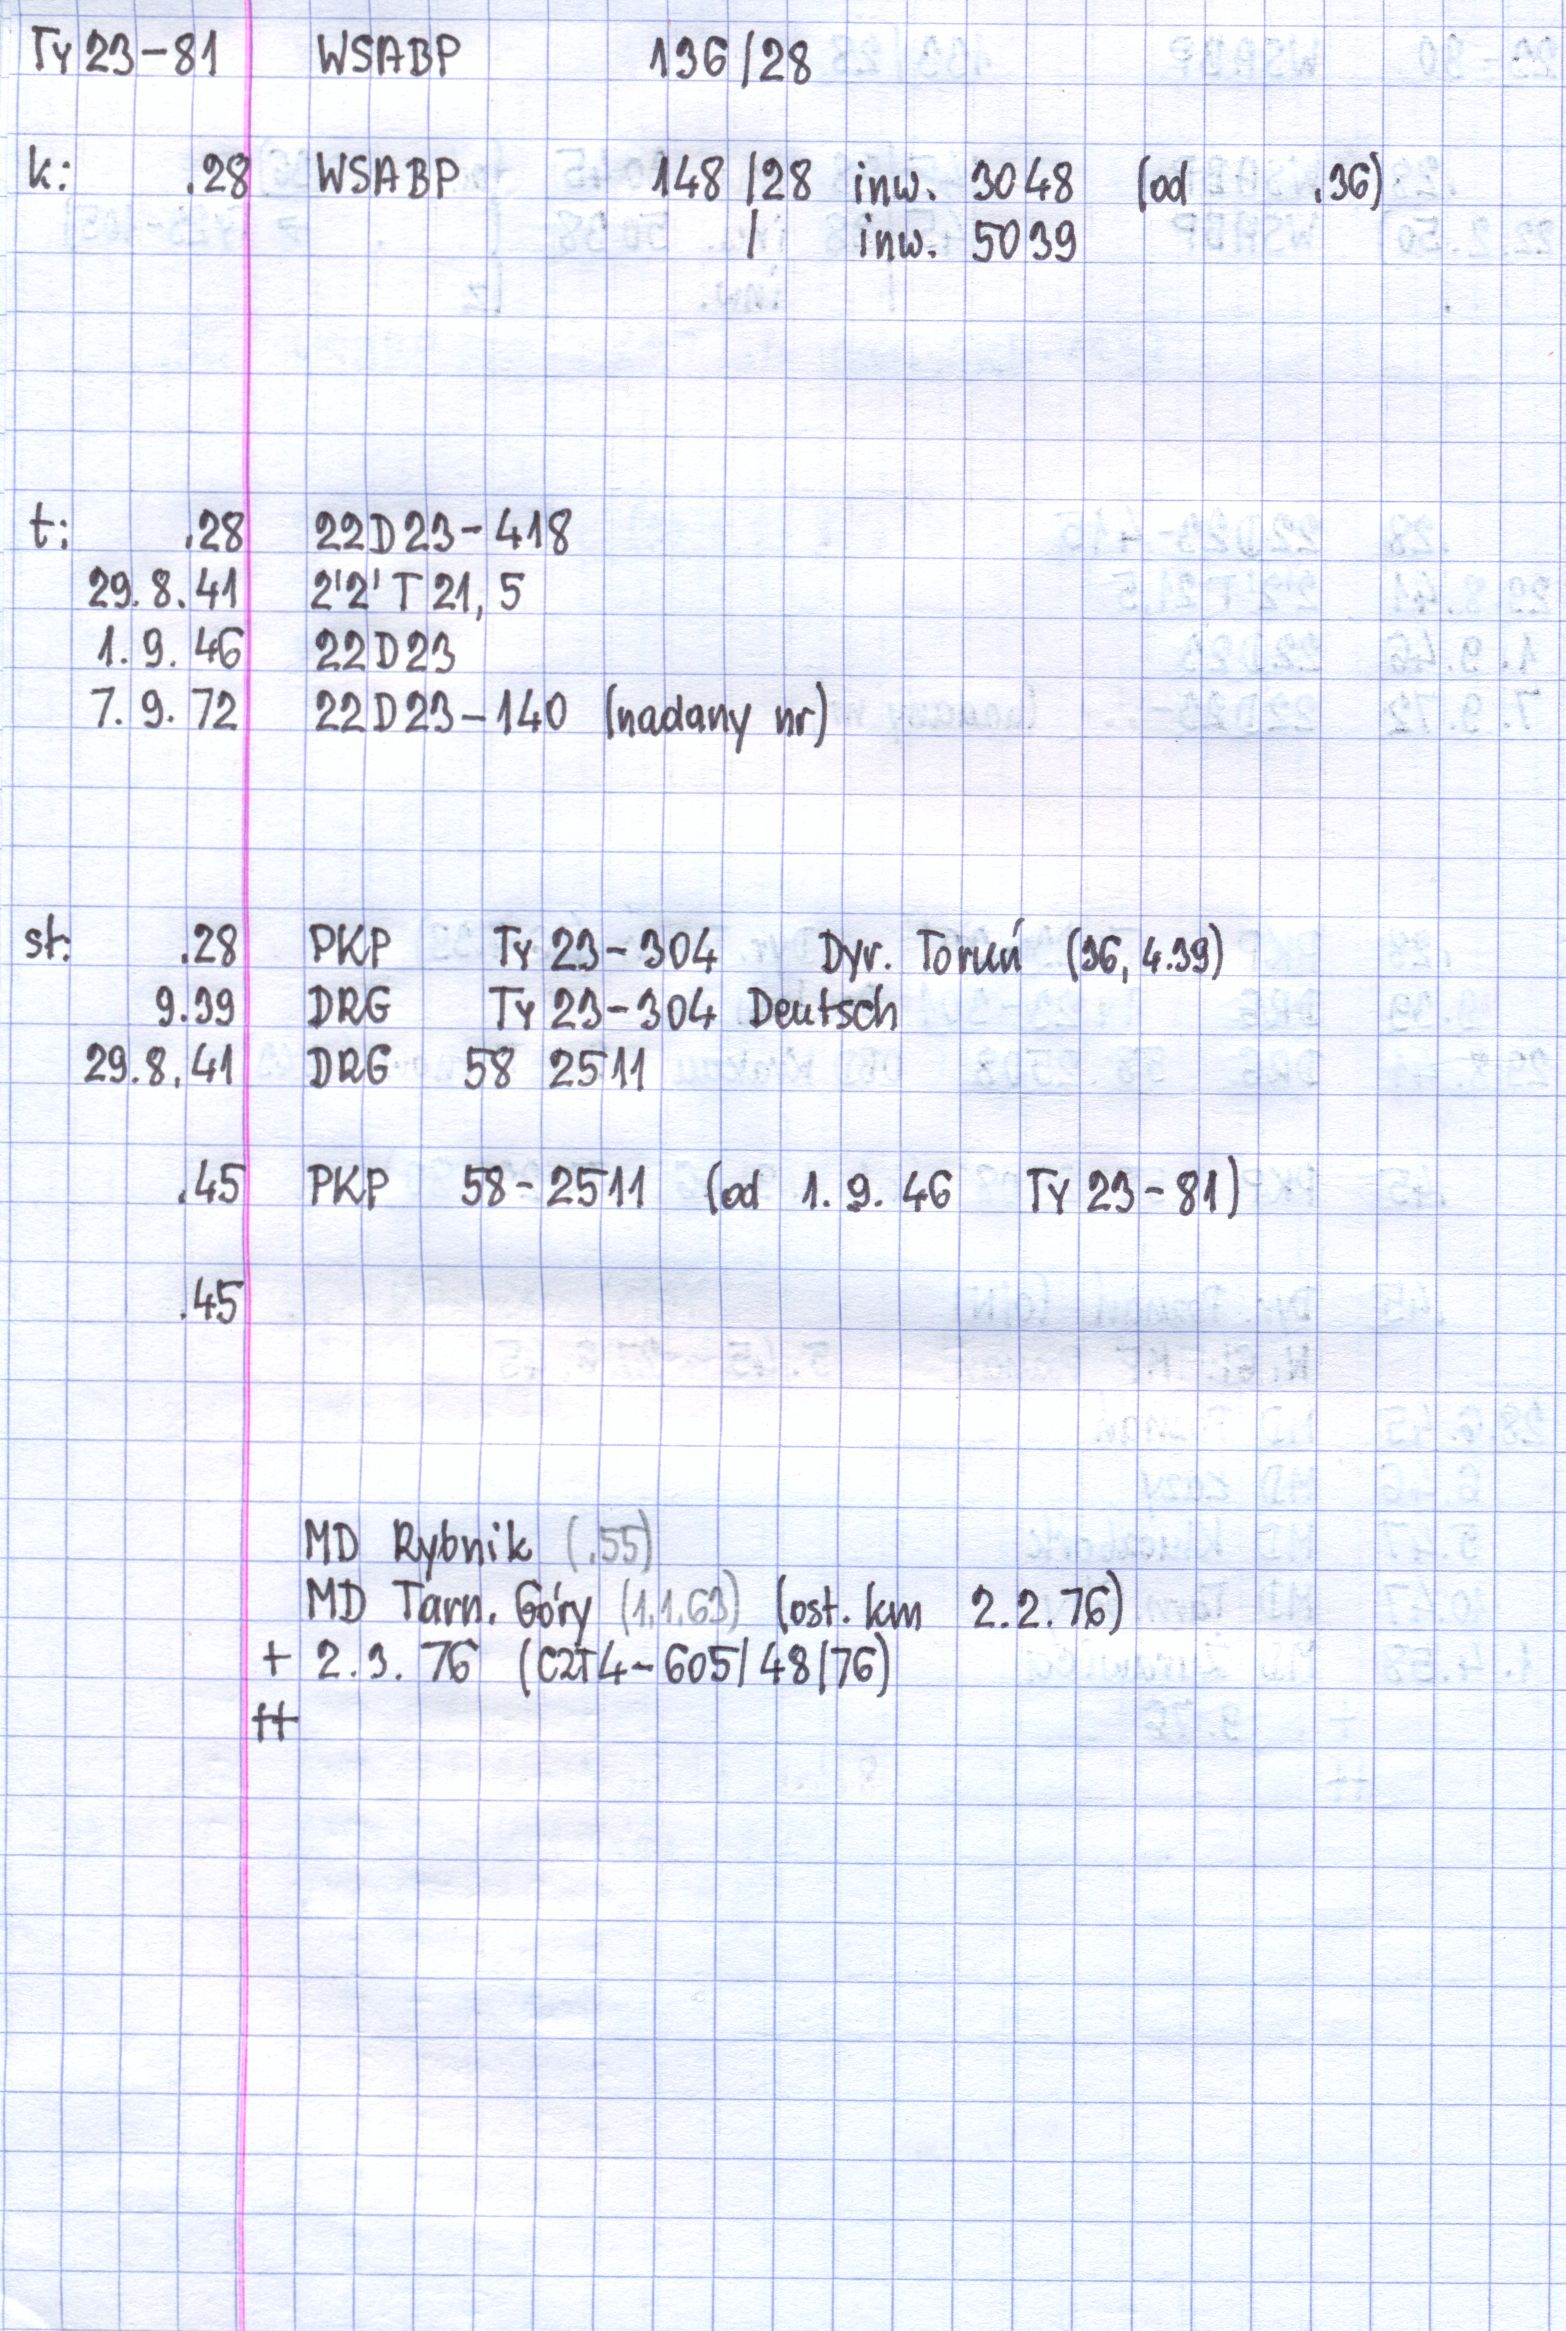 Ty 23-81 WSABP 136/28
k: .28 WSABP 148/28 inw. 3048 (od .36)
/ inw. 5039
t: .28 22D23-418
29.8.41 2'2' T 21,5
1.9.46 22D23
7.9.72 22D23-140 (nadany nr)
st: .28 PKP Ty 23-304 Dyr. Toruń (36, 4.39)
9.39 DRG Ty 23-304 Deutsch
29.8.41 DRG 58 2511
.45 PKP 58-2511 (od 1.9.46 Ty 23-81)
.45
MD Rybnik (.55)
MD Tarn. Góry (1.1.63) (ost. km 2.2.76)
+ 2.3.76 (CZT4-605/48/76)
++